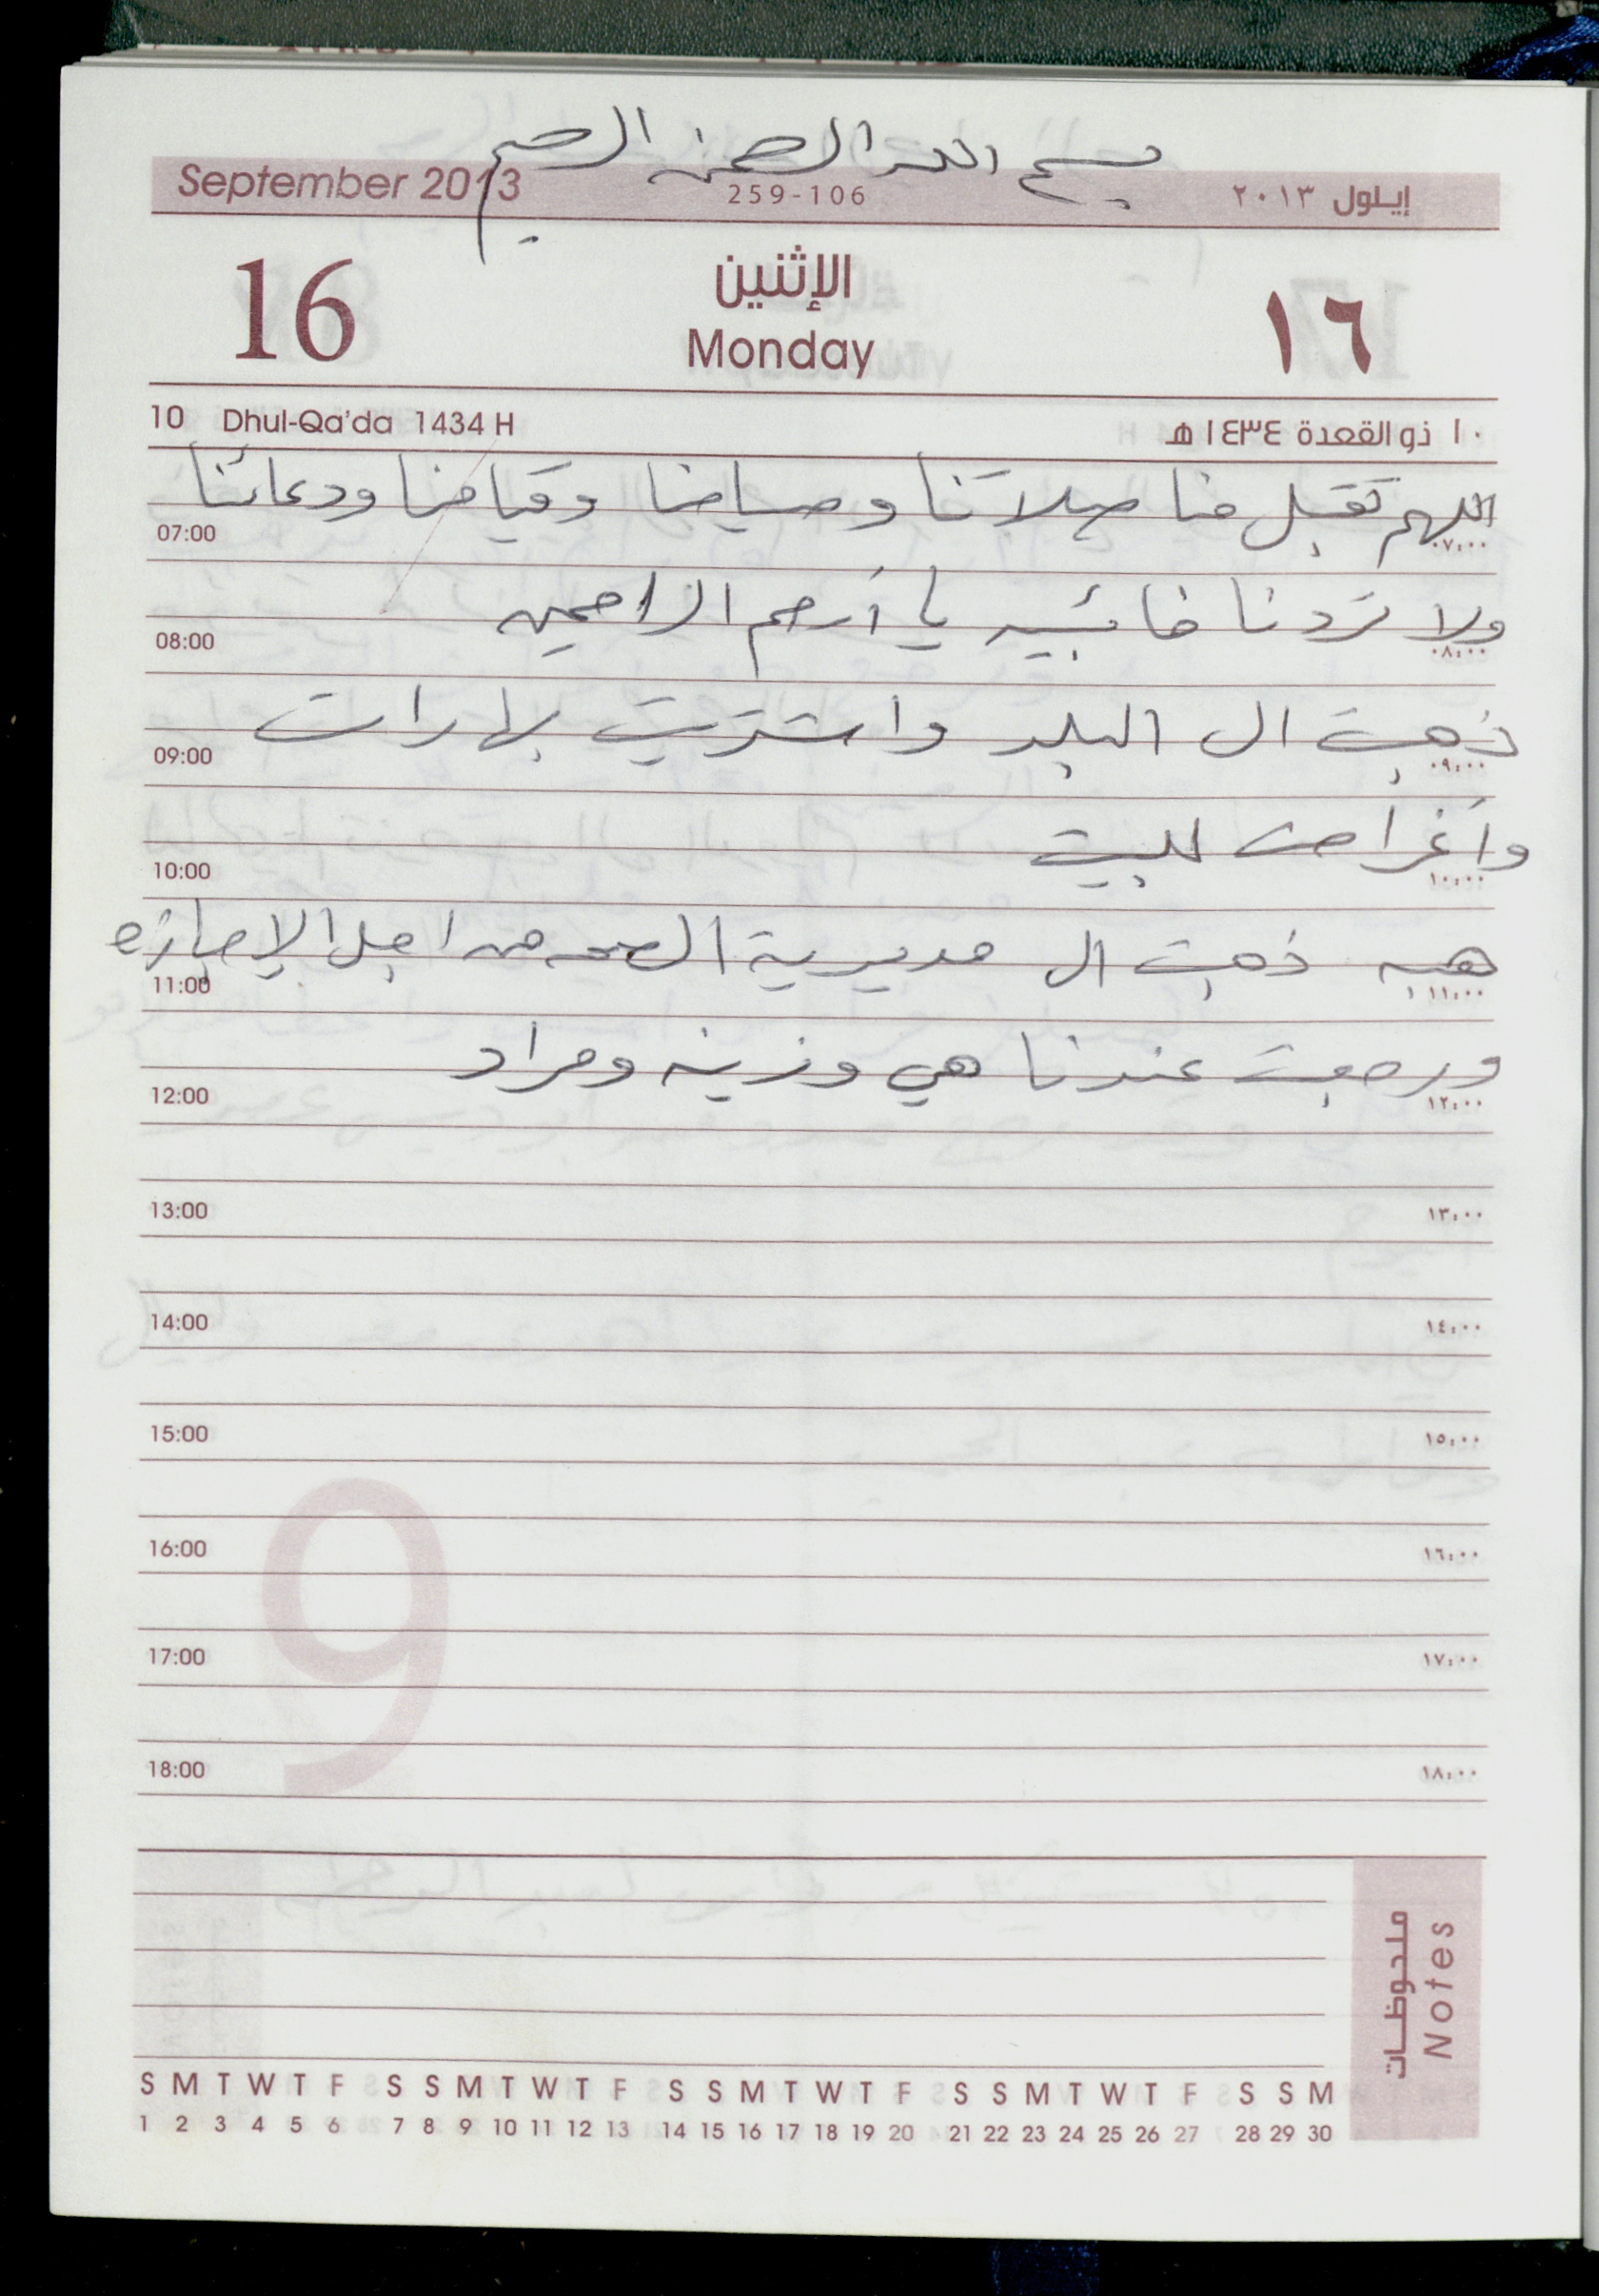 بسم الله الرحمن الرحيم
September 2013 259-106 إيلول ٢٠١٣
16 الإثنين ١٦
Monday
10 Dhul-Qa'da 1434 H ١٠ ذو القعدة ١٤٣٤ هـ
اللهم تقبل منا صلاتنا وصيامنا وقيامنا ودعائنا
07:00 ٠٧:٠٠
ولا تردنا خائبين يا أرحم الراحمين
08:00 ٠٨:٠٠
ذهبت ال البلد واشتريت بهارات
09:00 ٠٩:٠٠
وأغراض للبيت
10:00 ١٠:٠٠
هبه ذهبت ال مديرية الصحه من اجل الإجازه
11:00 ١١:٠٠
ورجعت عندنا هي وزينه ومراد
12:00 ١٢:٠٠
13:00 ١٣:٠٠
14:00 ١٤:٠٠
15:00 ١٥:٠٠
16:00 ١٦:٠٠
17:00 ١٧:٠٠
18:00 ١٨:٠٠
9
ملحوظات
Notes
S M T W T F S S M T W T F S S M T W T F S S M T W T F S S M
1 2 3 4 5 6 7 8 9 10 11 12 13 14 15 16 17 18 19 20 21 22 23 24 25 26 27 28 29 30